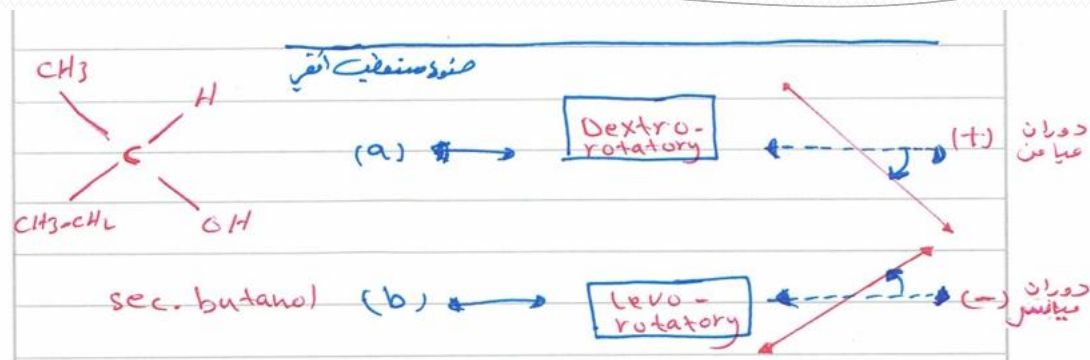 ضوء مستقطب أفقي
CH3
H
C
CH3-CH2
OH
(a)
Dextro-
rotatory
(+)
دوران
sec. butanol
(b)
Levo-
rotatory
(-)
دوران